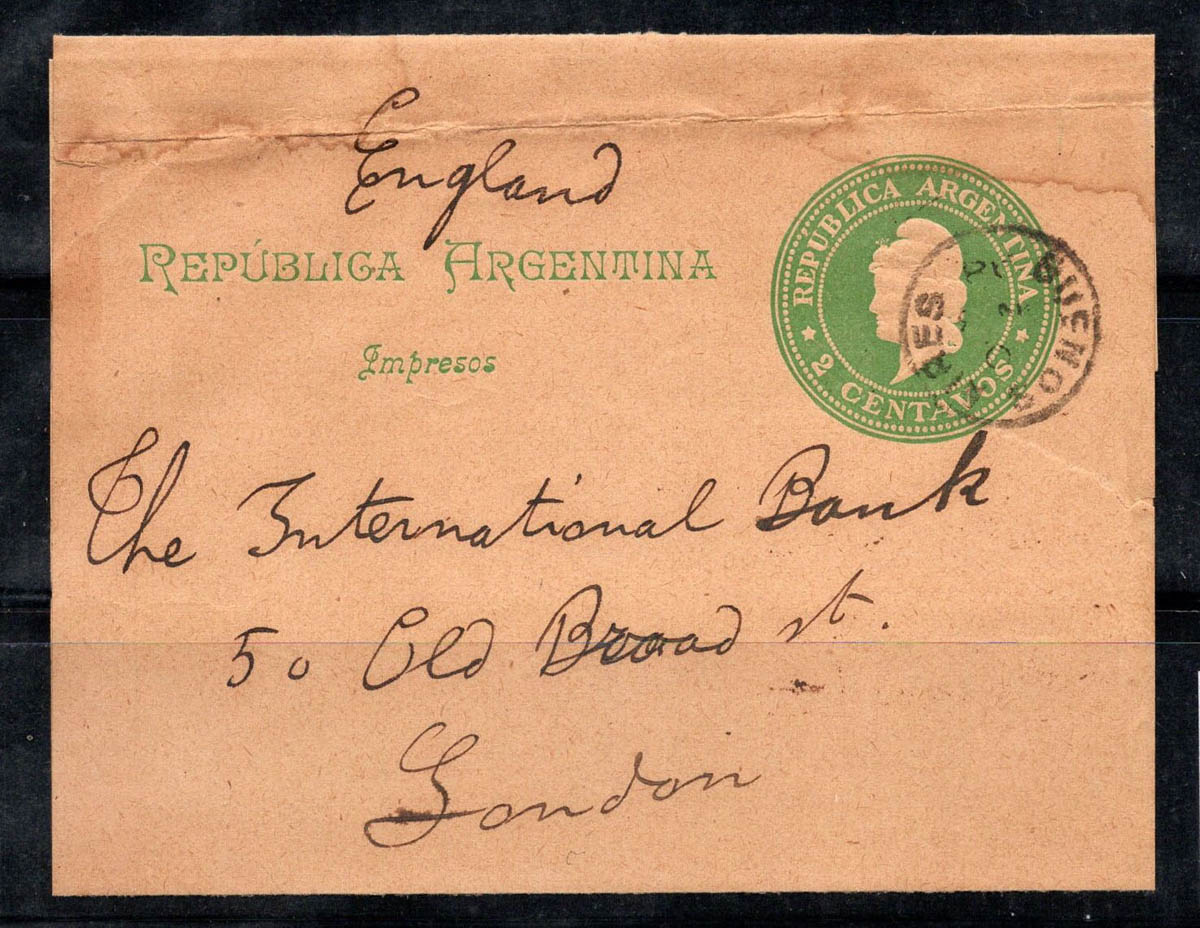 England
REPÚBLICA ARGENTINA
REPUBLICA ARGENTINA
2 CENTAVOS
BUENOS AIRES
Impresos
The International Bank
50 Old Broad st.
London